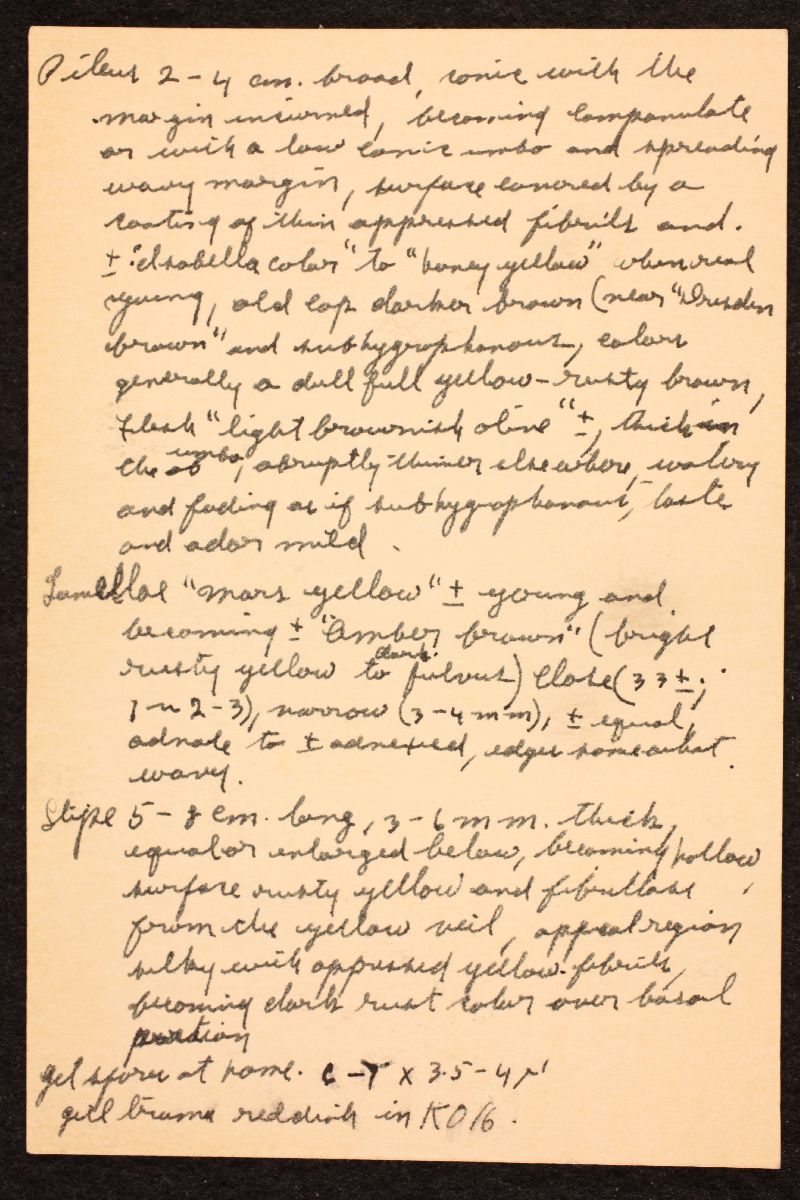 Pileus 2-4 cm. broad, conic with the
margin incurved, becoming campanulate
or with a low conic umbo and spreading
wavy margin, surface covered by a
coating of thin appressed fibrils and.
± "Isabella color" to "honey yellow" when real
young, old cap darker brown (near "Dresden
brown" and subhygrophanous, colors
generally a dull full yellow-rusty brown,
flesh "light brownish olive" ±, thick in
the umbo, abruptly thinner elsewhere, watery
and fading as if subhygrophanous, taste
and odor mild.
Lamellae "mars yellow" ± young and
becoming ± "Amber brown" (bright
rusty yellow to dark fulvus) close (33±;
1-n 2-3), narrow (3-4 mm), ± equal,
adnate to ± adnexed, edges somewhat
wavy.
Stipe 5-8 cm. long, 3-6 mm. thick,
equal or enlarged below, becoming hollow,
surface rusty yellow and fibrillose
from the yellow veil, apical region
silky with appressed yellow fibrils,
becoming dark rust color over basal
portion
get spores at home. × 3.5-4 μ
gill trama reddish in KOH.